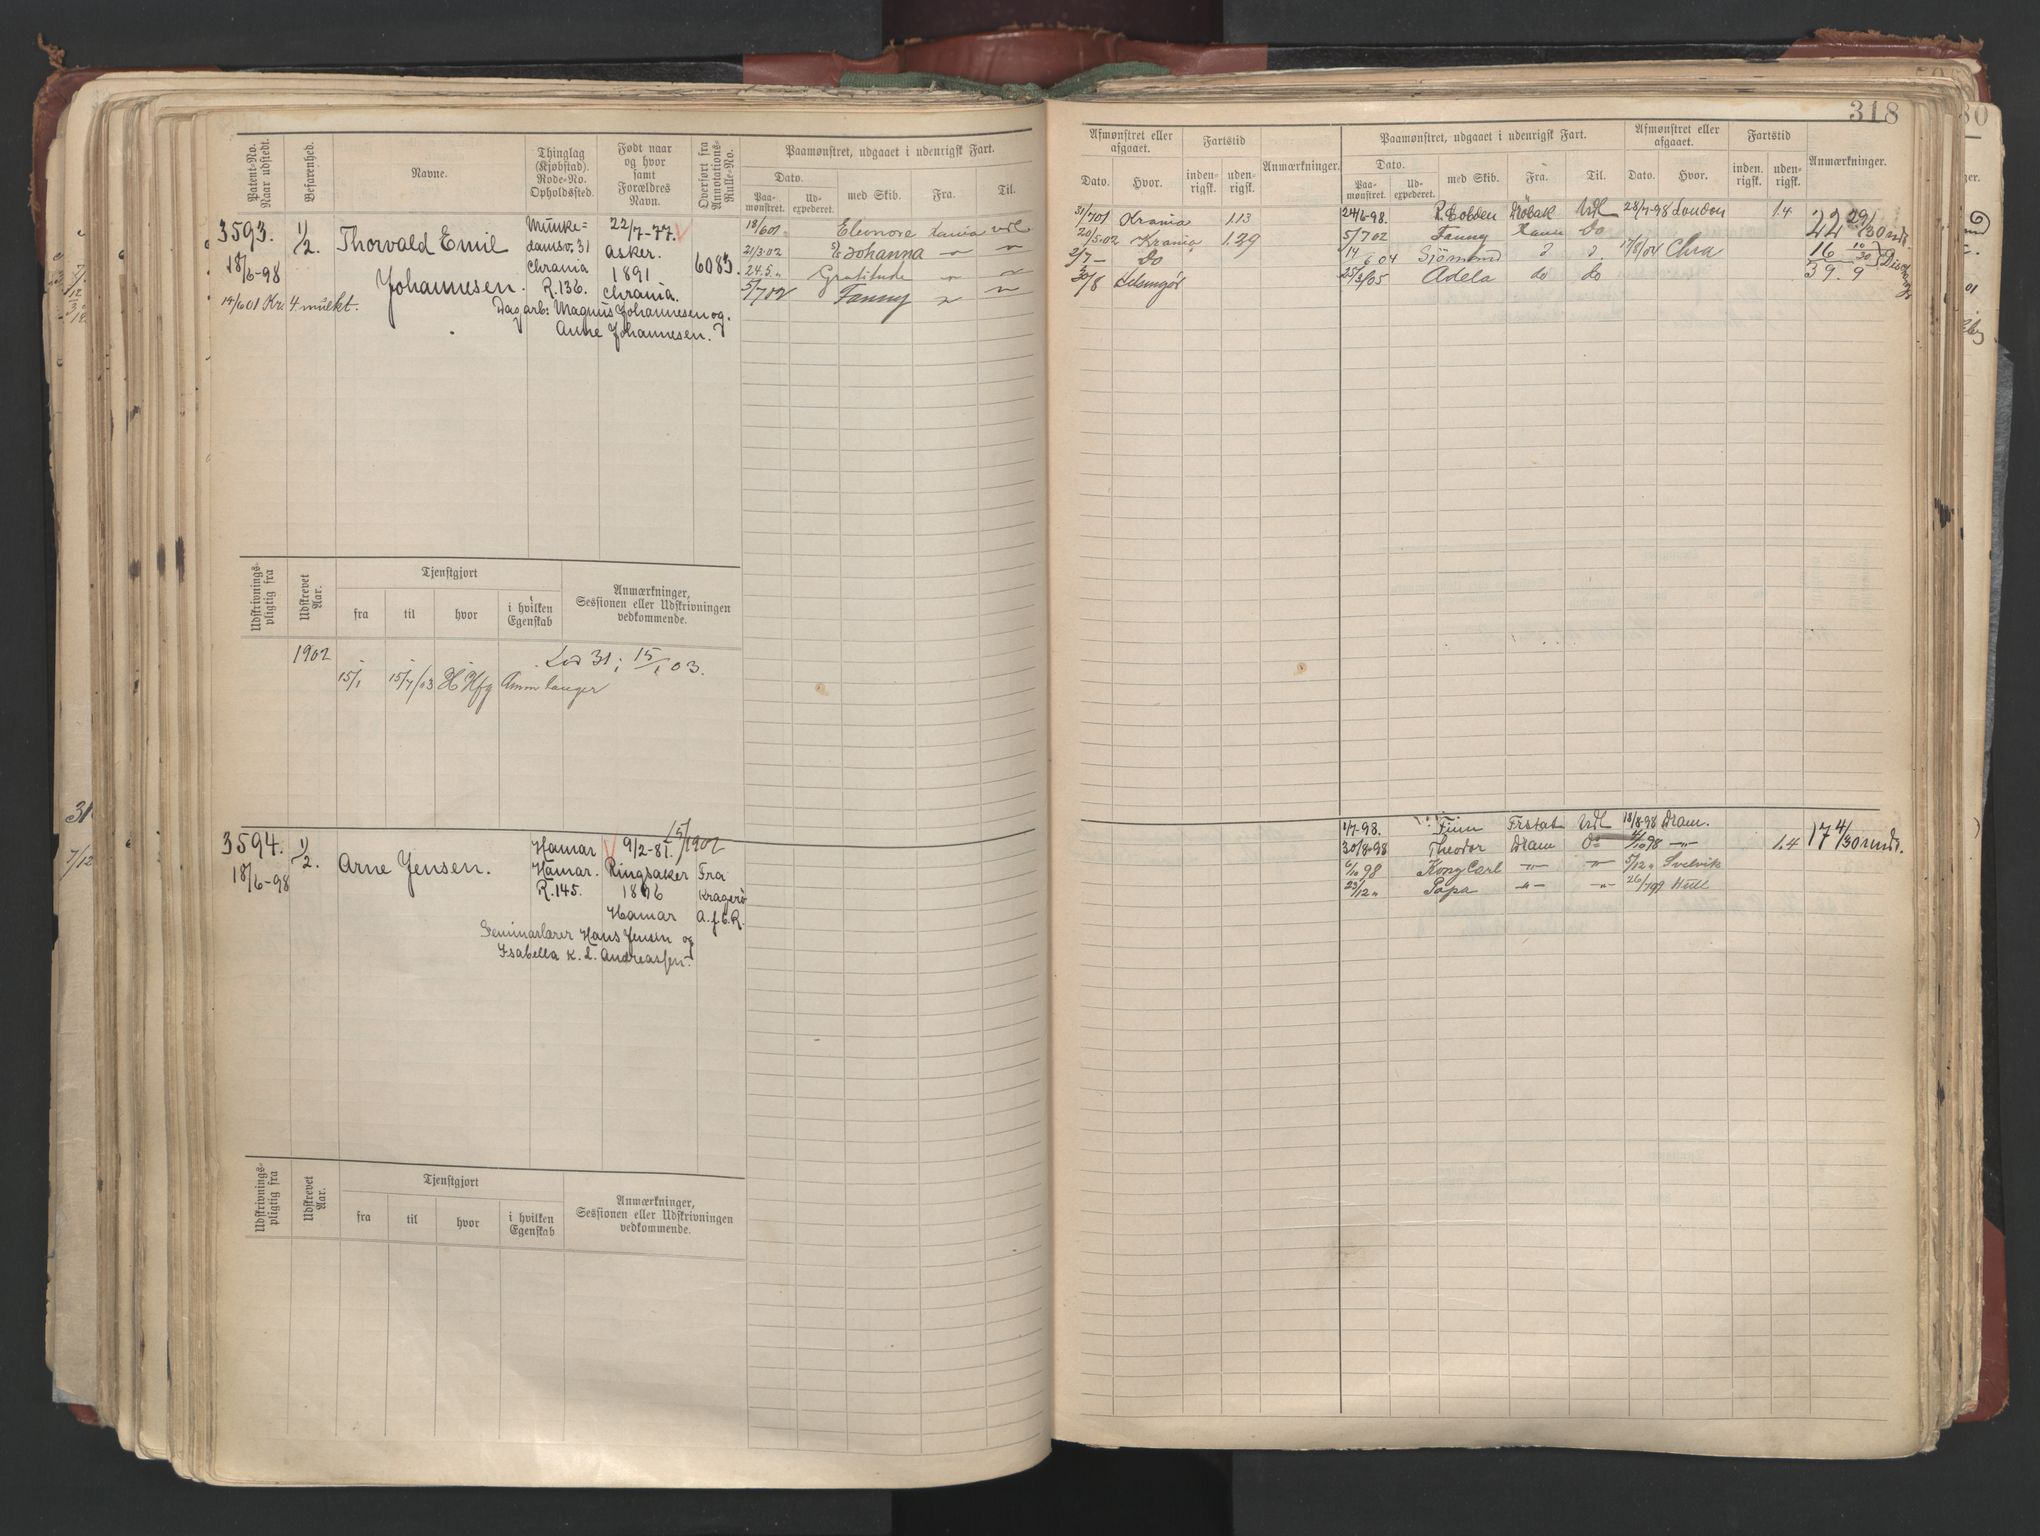 318
Patent-No. Naar udstedt.
Befarenhed.
Navne.
Thinglag (Kjøbstad). Rode-No. Opholdssted.
Født naar og hvor samt Forældres Navn.
Overført fra Annotations-Rulle-No.
Paamønstret, udgaaet i udenrigsk Fart.
Dato.
Paa-mønstret.
Ud-expederet.
med Skib.
Fra.
Til.
3593.
18/6-98
1/2.
Thorvald Emil
Johannesen.
Munke-
damsv. 31
Chrania
R. 136.
22/7-77.
Asker.
1891
Chrania.
6083.
Dagarb: Magnus Johannesen og
Anne Johannesen.
14/6 01 Kr. 4 mulkt.
18/6 01 Eleonore Xania udl
21/3 02 Johanna " "
24.5 " Gratitude " "
5/7 02 Fanny " "
Udskrivnings-pligtig fra
Udskrevet Aar.
Tjenstgjort
fra
til
hvor
i hvilken Egenskab
Anmærkninger, Sessionen eller Udskrivningen vedkommende.
1902
15/1 15/7/03
15/1 03.
3594.
18/6-98
1/2.
Arne Jensen.
Hamar
Hamar.
R. 145.
9/2-81. 15/1902
Ringsaker
1896
Hamar
Fra
Kragerø
A.f.C.R.
Seminarlærer Hans Jensen og
Isabella K. L. Andreassen.
Udskrivnings-pligtig fra
Udskrevet Aar.
Tjenstgjort
fra
til
hvor
i hvilken Egenskab
Anmærkninger, Sessionen eller Udskrivningen vedkommende.
Afmønstret eller afgaaet.
Dato.
Hvor.
Fartstid
inden-rigsk.
uden-rigsk.
Anmærkninger.
Paamønstret, udgaaet i udenrigsk Fart.
Dato.
Paa-mønstret.
Ud-expederet.
med Skib.
Fra.
Til.
Afmønstret eller afgaaet.
Dato.
Hvor.
Fartstid
inden-rigsk.
uden-rigsk.
Anmærkninger.
31/7 01 Krania 1.13
20/5.02 Krania 1.29
2/7 - Do
30/8 Helsingør
24/6-98. R. Cobden Drøbak Udl 28/7-98 London 1.4
5/7 02 Fanny Xania Do
14/6 04 Sigmund 17/8/04 Chra
25/3/05 Adela do do
22 29/30 mdr.
16 10/30
39. 9
1/7-98. Finn Frstat Udl 18/8-98 Dram.
30/8-98 Theodor Dram do 4/10 98 -"- 1.4
6/10 98 Kong Carl -"- -"- 5/12 " Svelvik
23/12 " Papa -"- -"- 26/7 99 Hull
17 4/30 mdr.